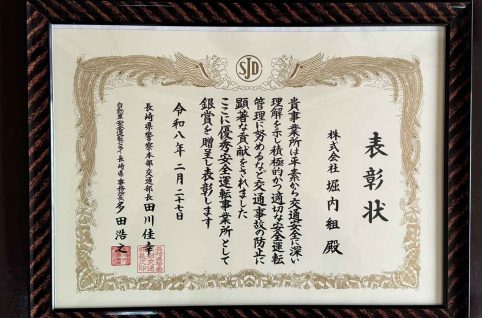 SJD
表彰状
株式会社 堀内組 殿
貴事業所は平素から交通安全に深い
理解を示し積極的かつ適切な安全運転
管理に努めるなど交通事故の防止に
顕著な貢献をされました
ここに優秀安全運転事業所として
銀賞を贈呈し表彰します
令和八年 二月二十七日
長崎県警察本部交通部長 田川佳幸
自動車安全運転センター長崎県事務所長 多田浩之